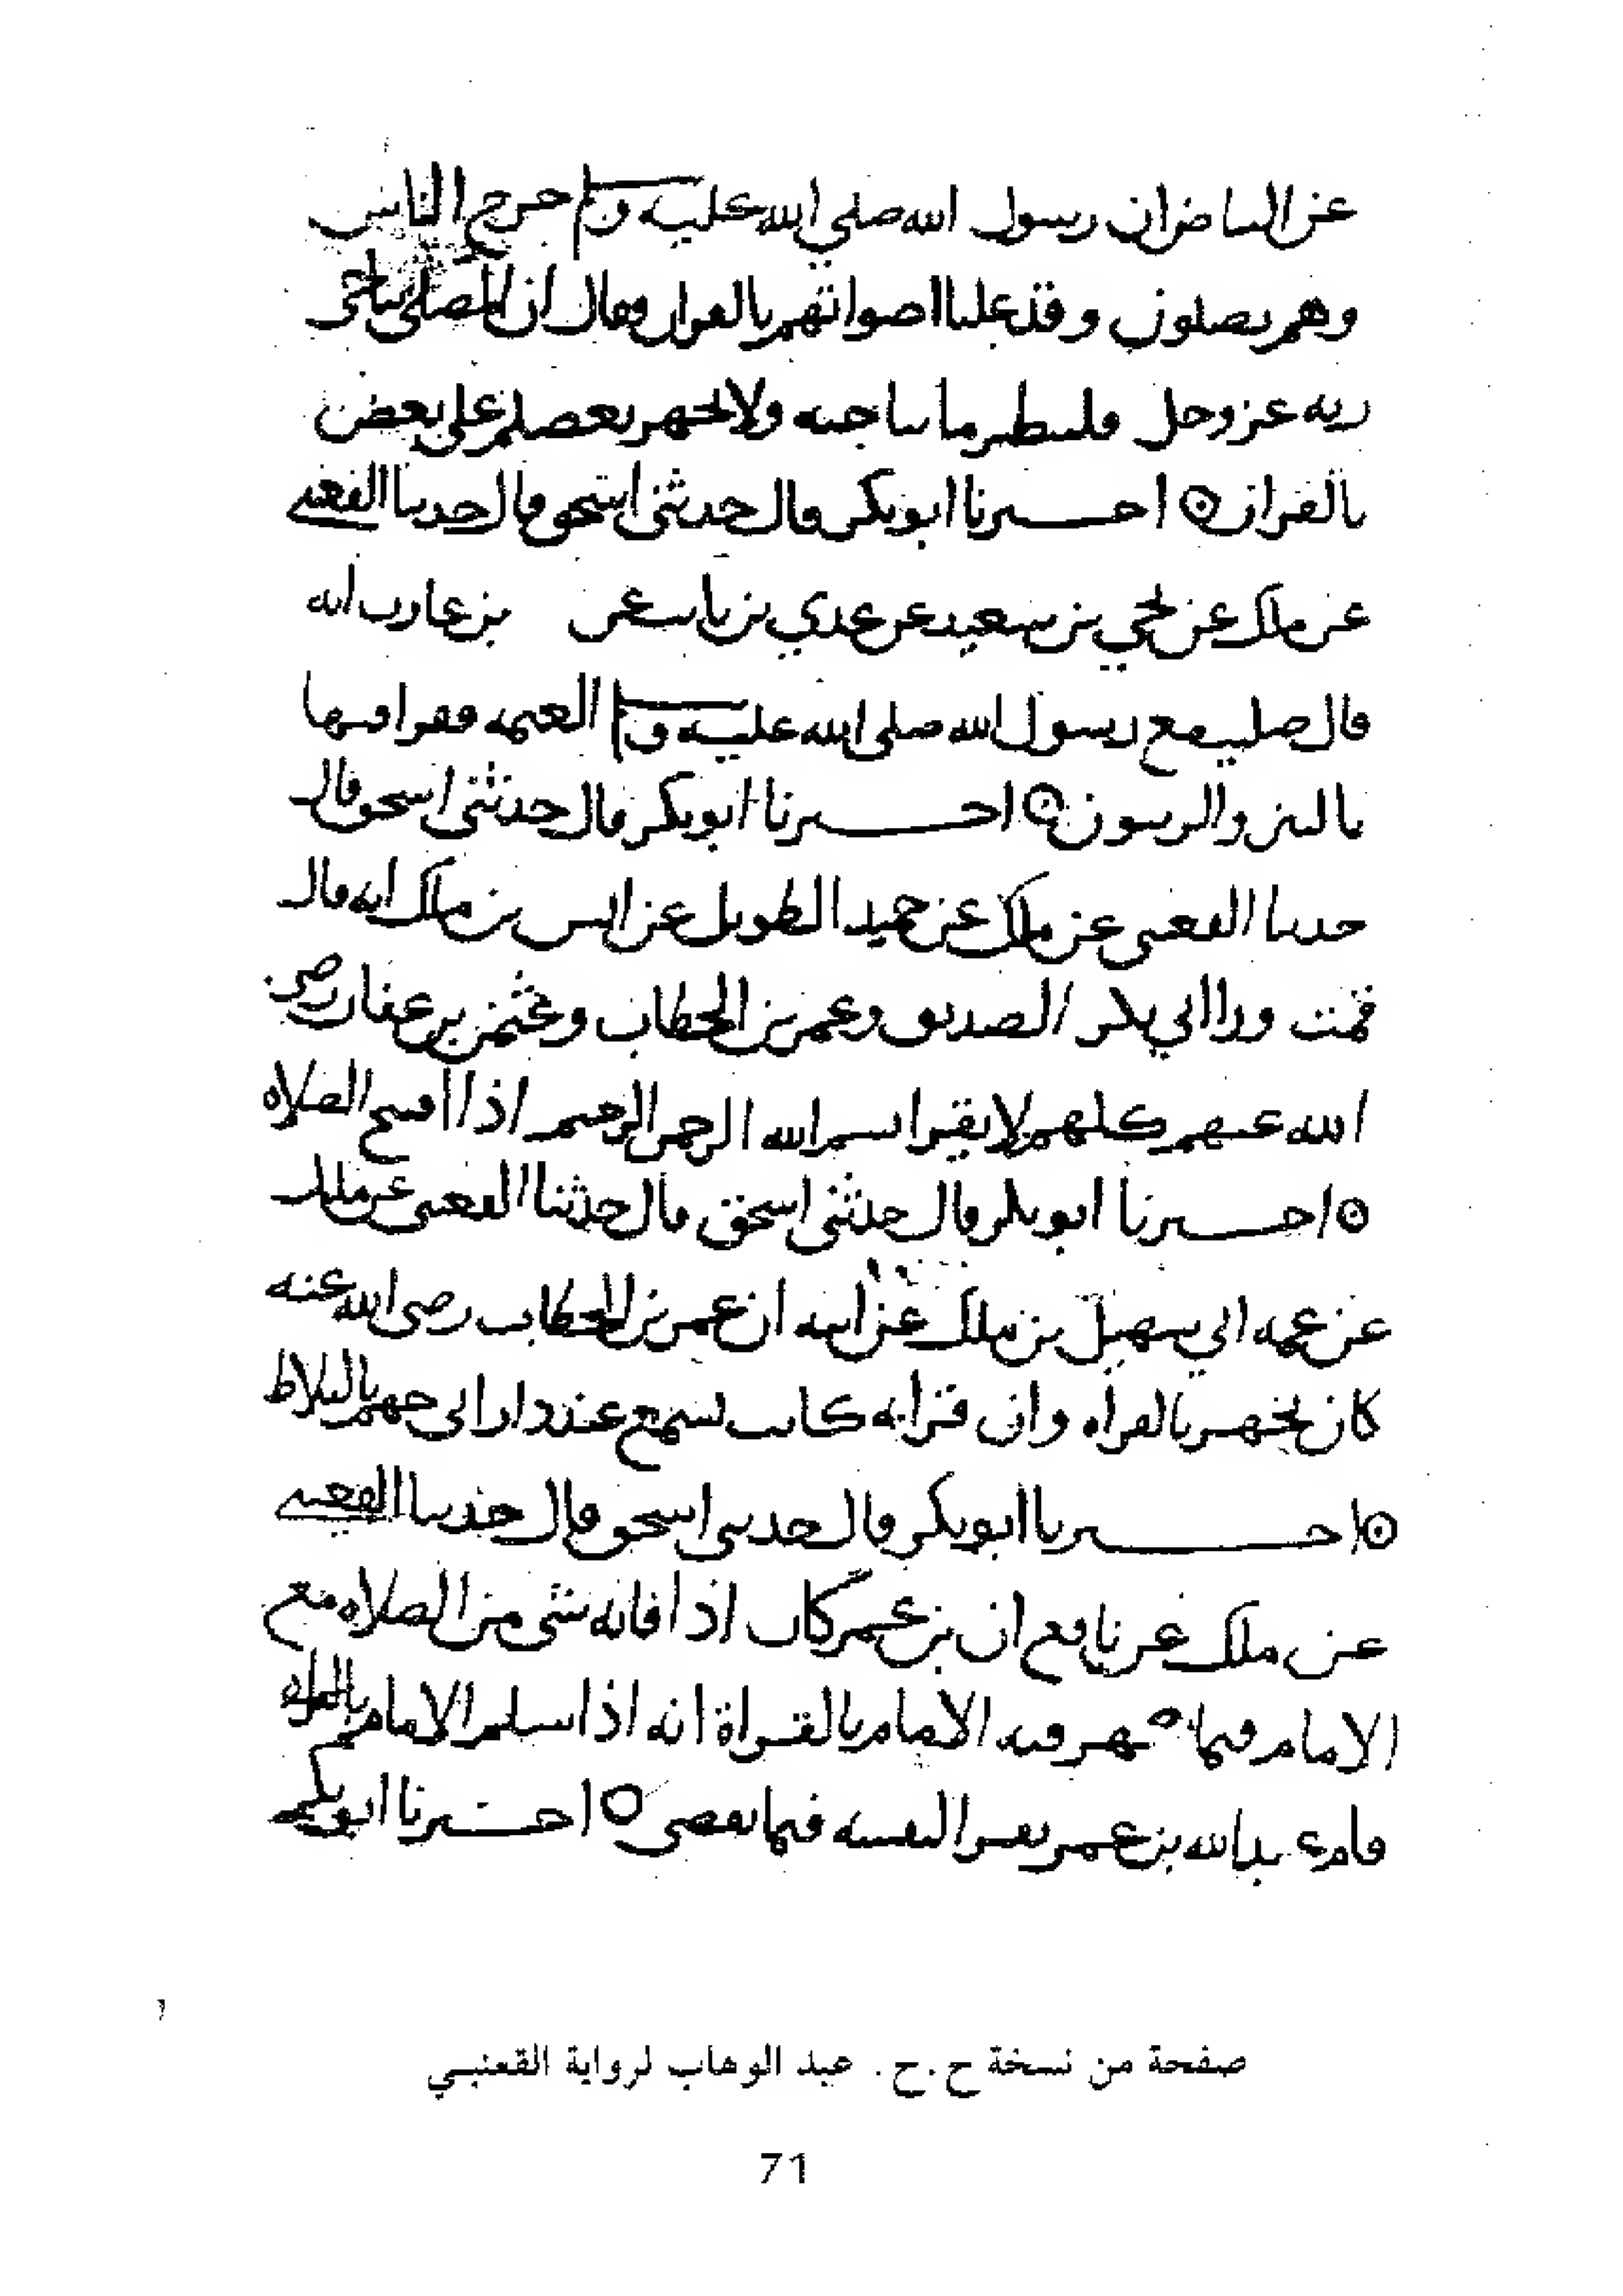 عن البياضي ان رسول الله صلى الله عليه وسلم خرج الناس
وهم يصلون وقد علت اصواتهم بالقران فقال ان المصلي يناجي
ربه عز وجل فلينظر ما يناجيه ولا يجهر بعضكم على بعض
بالقران اخبرنا ابو بكر قال حدثني اسحق قال حدثنا القعنبي
عن ملك عن يحيى بن سعيد عن عدي بن ثابت عن بن عازب انه
قال صليت مع رسول الله صلى الله عليه وسلم العتمه فقرا فيها
بالتين والزيتون اخبرنا ابو بكر قال حدثني اسحق قال
حدثنا القعنبي عن ملك عن حميد الطويل عن انس بن ملك انه قال
قمت ورا ابي بكر الصديق وعمر بن الخطاب وعثمن بن عفان رضي
الله عنهم كلهم لا يقرا بسم الله الرحمن الرحيم اذا افتتح الصلاه
اخبرنا ابو بكر قال حدثني اسحق قال حدثنا القعنبي عن ملك
عن عمه ابي سهيل بن ملك عن ابيه ان عمر بن الخطاب رضي الله عنه
كان يجهر بالقراه وان قراته كانت تسمع عند دار ابي جهم بالبلاط
اخبرنا ابو بكر قال حدثني اسحق قال حدثنا القعنبي
عن ملك عن نافع ان بن عمر كان اذا فاته شي من الصلاه مع
الامام فيما جهر فيه الامام بالقراة انه اذا سلم الامام
قام عبد الله بن عمر يقرا لنفسه فيما يقضي اخبرنا ابو بكر
صفحة من نسخة ح.ح. عبد الوهاب لرواية القعنبي
71